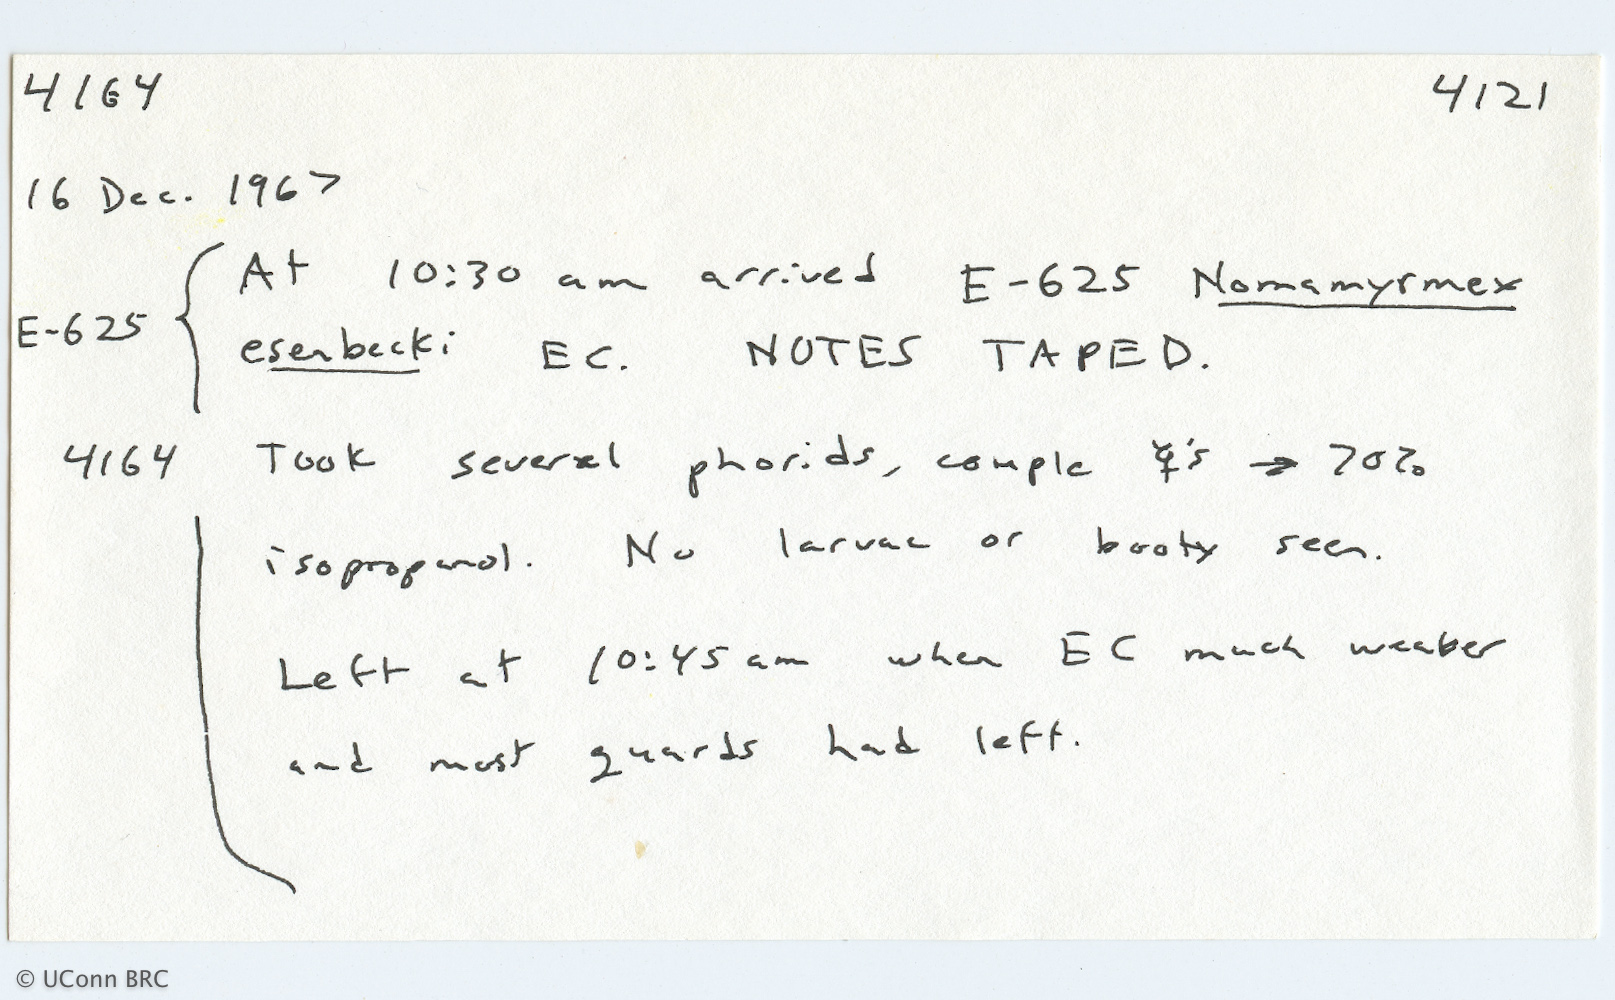 4164 4121
16 Dec. 1967
At 10:30 am arrived E-625 Nomamyrmex
E-625 esenbecki EC. NOTES TAPED.
4164 Took several phorids, couple ☿'s → 70%
isopropanol. No larvae or booty seen.
Left at 10:45 am when EC much weaker
and most guards had left.
© UConn BRC